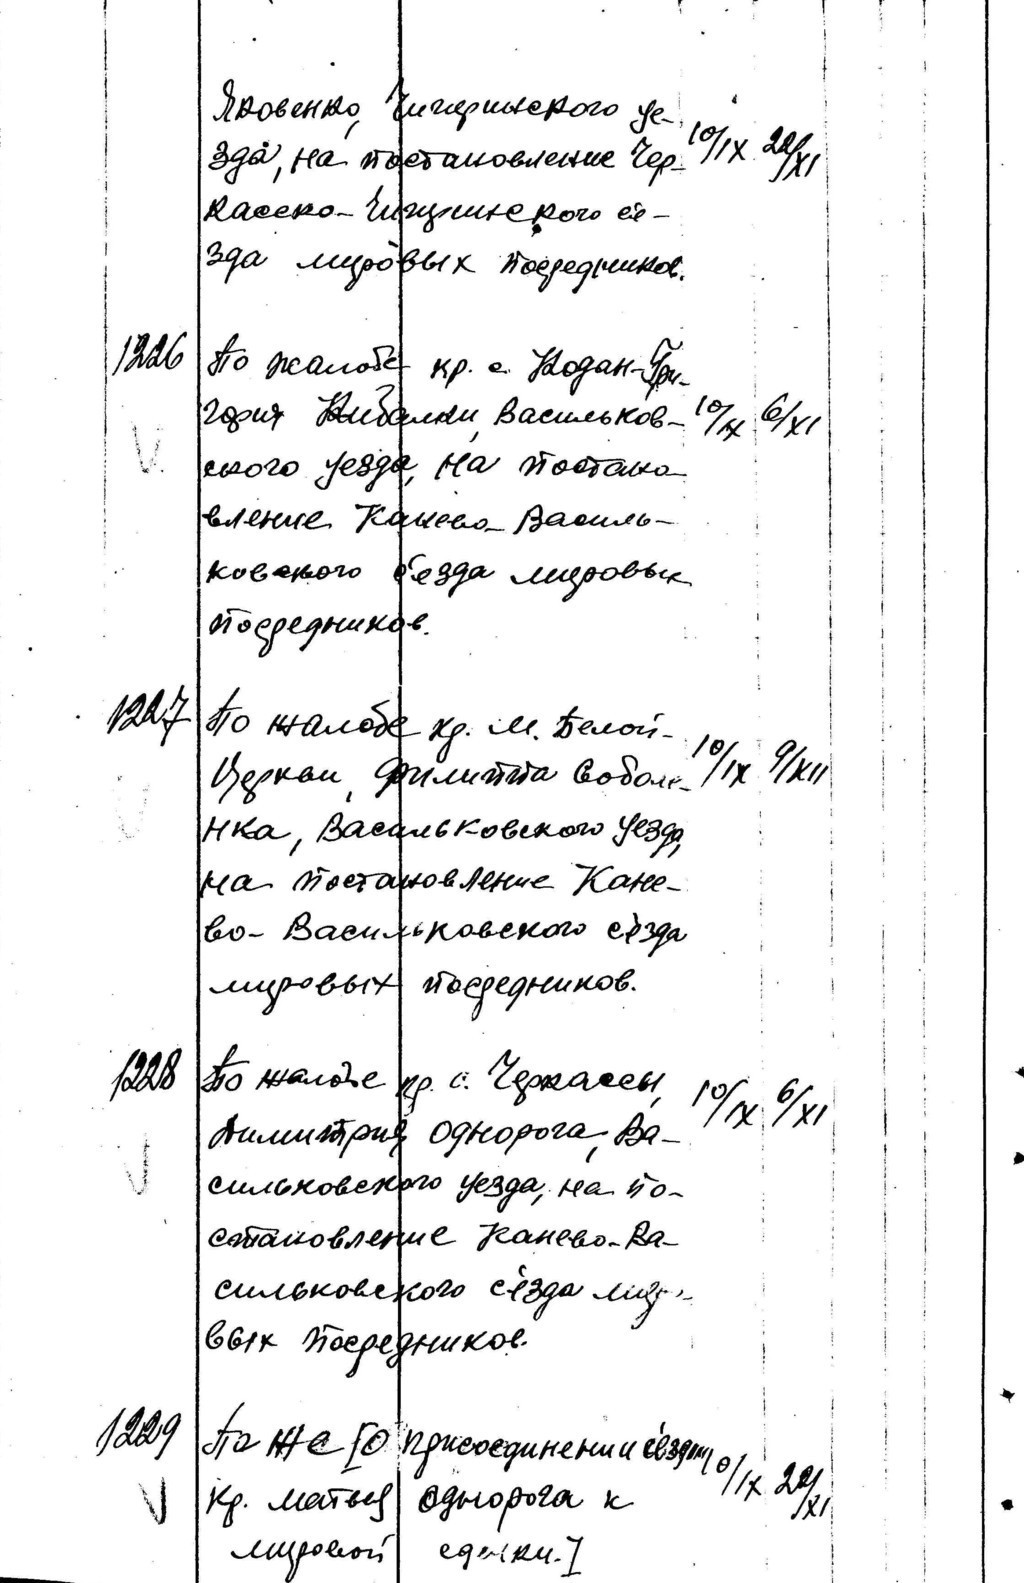 Яковенко, Чигиринского уе-
зда, на постановление Чер- 10/IX 22/XI
касско-Чигиринского съе-
зда мировых посредников.
1226 По жалобе кр. с. Кодак-Гри-
гория Кибалки, Васильков- 10/IX 6/XI
V ского уезда, на постано
вление Канево-Василь-
ковского съезда мировых
посредников.
1227 По жалобе кр. м. Белой-
Церкви, Филиппа Соболе- 10/IX 9/XII
V нка, Васильковского уезда,
на постановление Кане-
во-Васильковского съезда
мировых посредников.
1228 По жалобе кр. с. Черкассы, 10/IX 6/XI
Димитрия Однорога, Ва-
V сильковского уезда, на по-
становление Канево-Ва-
сильковского съезда миро-
вых посредников.
1229 По же [о присоединении 10/IX 22/XI
V Кр. Матвея Однорога к
мировой сделки.]